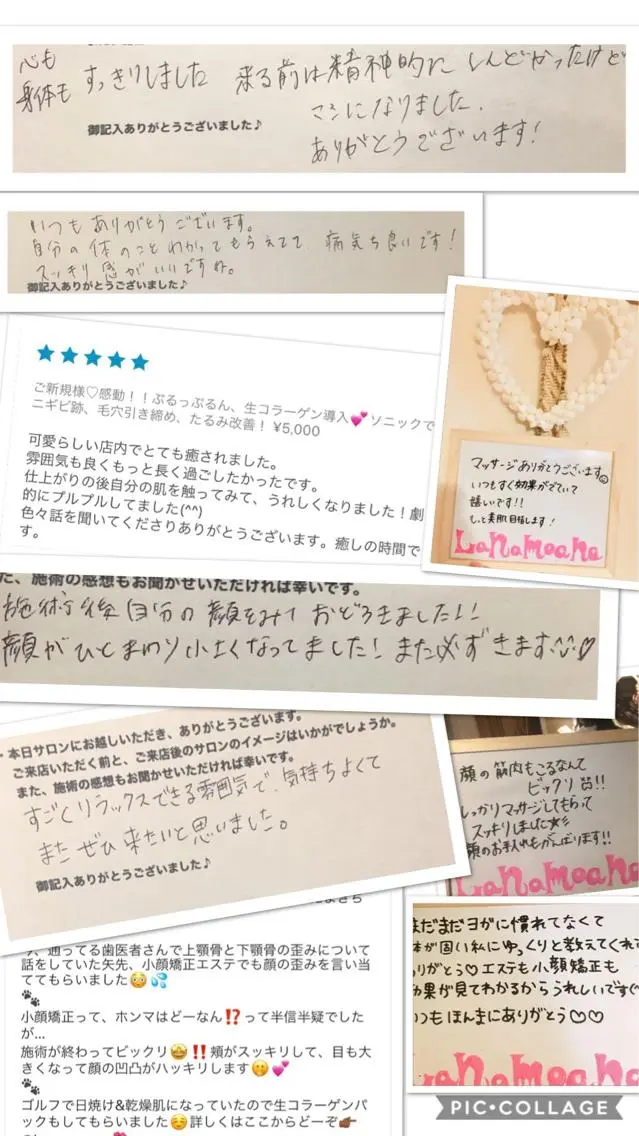 心も
身体も すっきりしました 来る前は精神的にしんどかったけど
マシになりました.
ありがとうございます!
御記入ありがとうございました♪
いつもありがとうございます。
自分の体のことわかってもらえてて 病気ち良いです!
スッキリ感がいいですね。
御記入ありがとうございました♪
★★★★★
ご新規様♡感動!!ぷるっぷるん、生コラーゲン導入💕ソニックで
ニギビ跡、毛穴引き締め、たるみ改善! ¥5,000
可愛らしい店内でとても癒されました。
雰囲気も良くもっと長く過ごしたかったです。
仕上がりの後自分の肌を触ってみて、うれしくなりました!劇
的にプルプルしてました(^^)
色々話を聞いてくださりありがとうございます。癒しの時間で
す。
マッサージありがとうございます☺
いつもすぐ効果がでていて
嬉しいです!!
もっと美肌目指します!
LaNaMoana
た、施術の感想もお聞かせいただければ幸いです。
施術後自分の顔をみておどろきました!!
顔がひとまわり小さくなってました!また必ずきます♡
・本日サロンにお越しいただき、ありがとうございます。
ご来店いただく前と、ご来店後のサロンのイメージはいかがでしょうか。
また、施術の感想もお聞かせいただければ幸いです。
すごくリラックスできる雰囲気で、気持ちよくて
またぜひ来たいと思いました。
御記入ありがとうございました♪
顔の筋肉もこるなんて
ビックリ!!
しっかりマッサージしてもらって
スッキリしました☆彡
顔のお手入れもがんばります!!
LaNaMoana
通ってる歯医者さんで上顎骨と下顎骨の歪みについて
話をしていた矢先、小顔矯正エステでも顔の歪みを言い当
ててもらいました😳💦
🐾
小顔矯正って、ホンマはどーなん⁉️って半信半疑でした
が...
施術が終わってビックリ🤩‼️頬がスッキリして、目も大
きくなって顔の凹凸がハッキリします🤭💕
🐾
ゴルフで日焼け&乾燥肌になっていたので生コラーゲンパ
ックもしてもらいました☺️詳しくはここからどーぞ👉🏾
まだまだヨガに慣れてなくて
体が固い私にゆっくりと教えてくれて
ありがとう♡エステも小顔矯正も
効果が見てわかるからうれしいです
いつもほんまにありがとう♡♡
LaNaMoana
PIC•COLLAGE